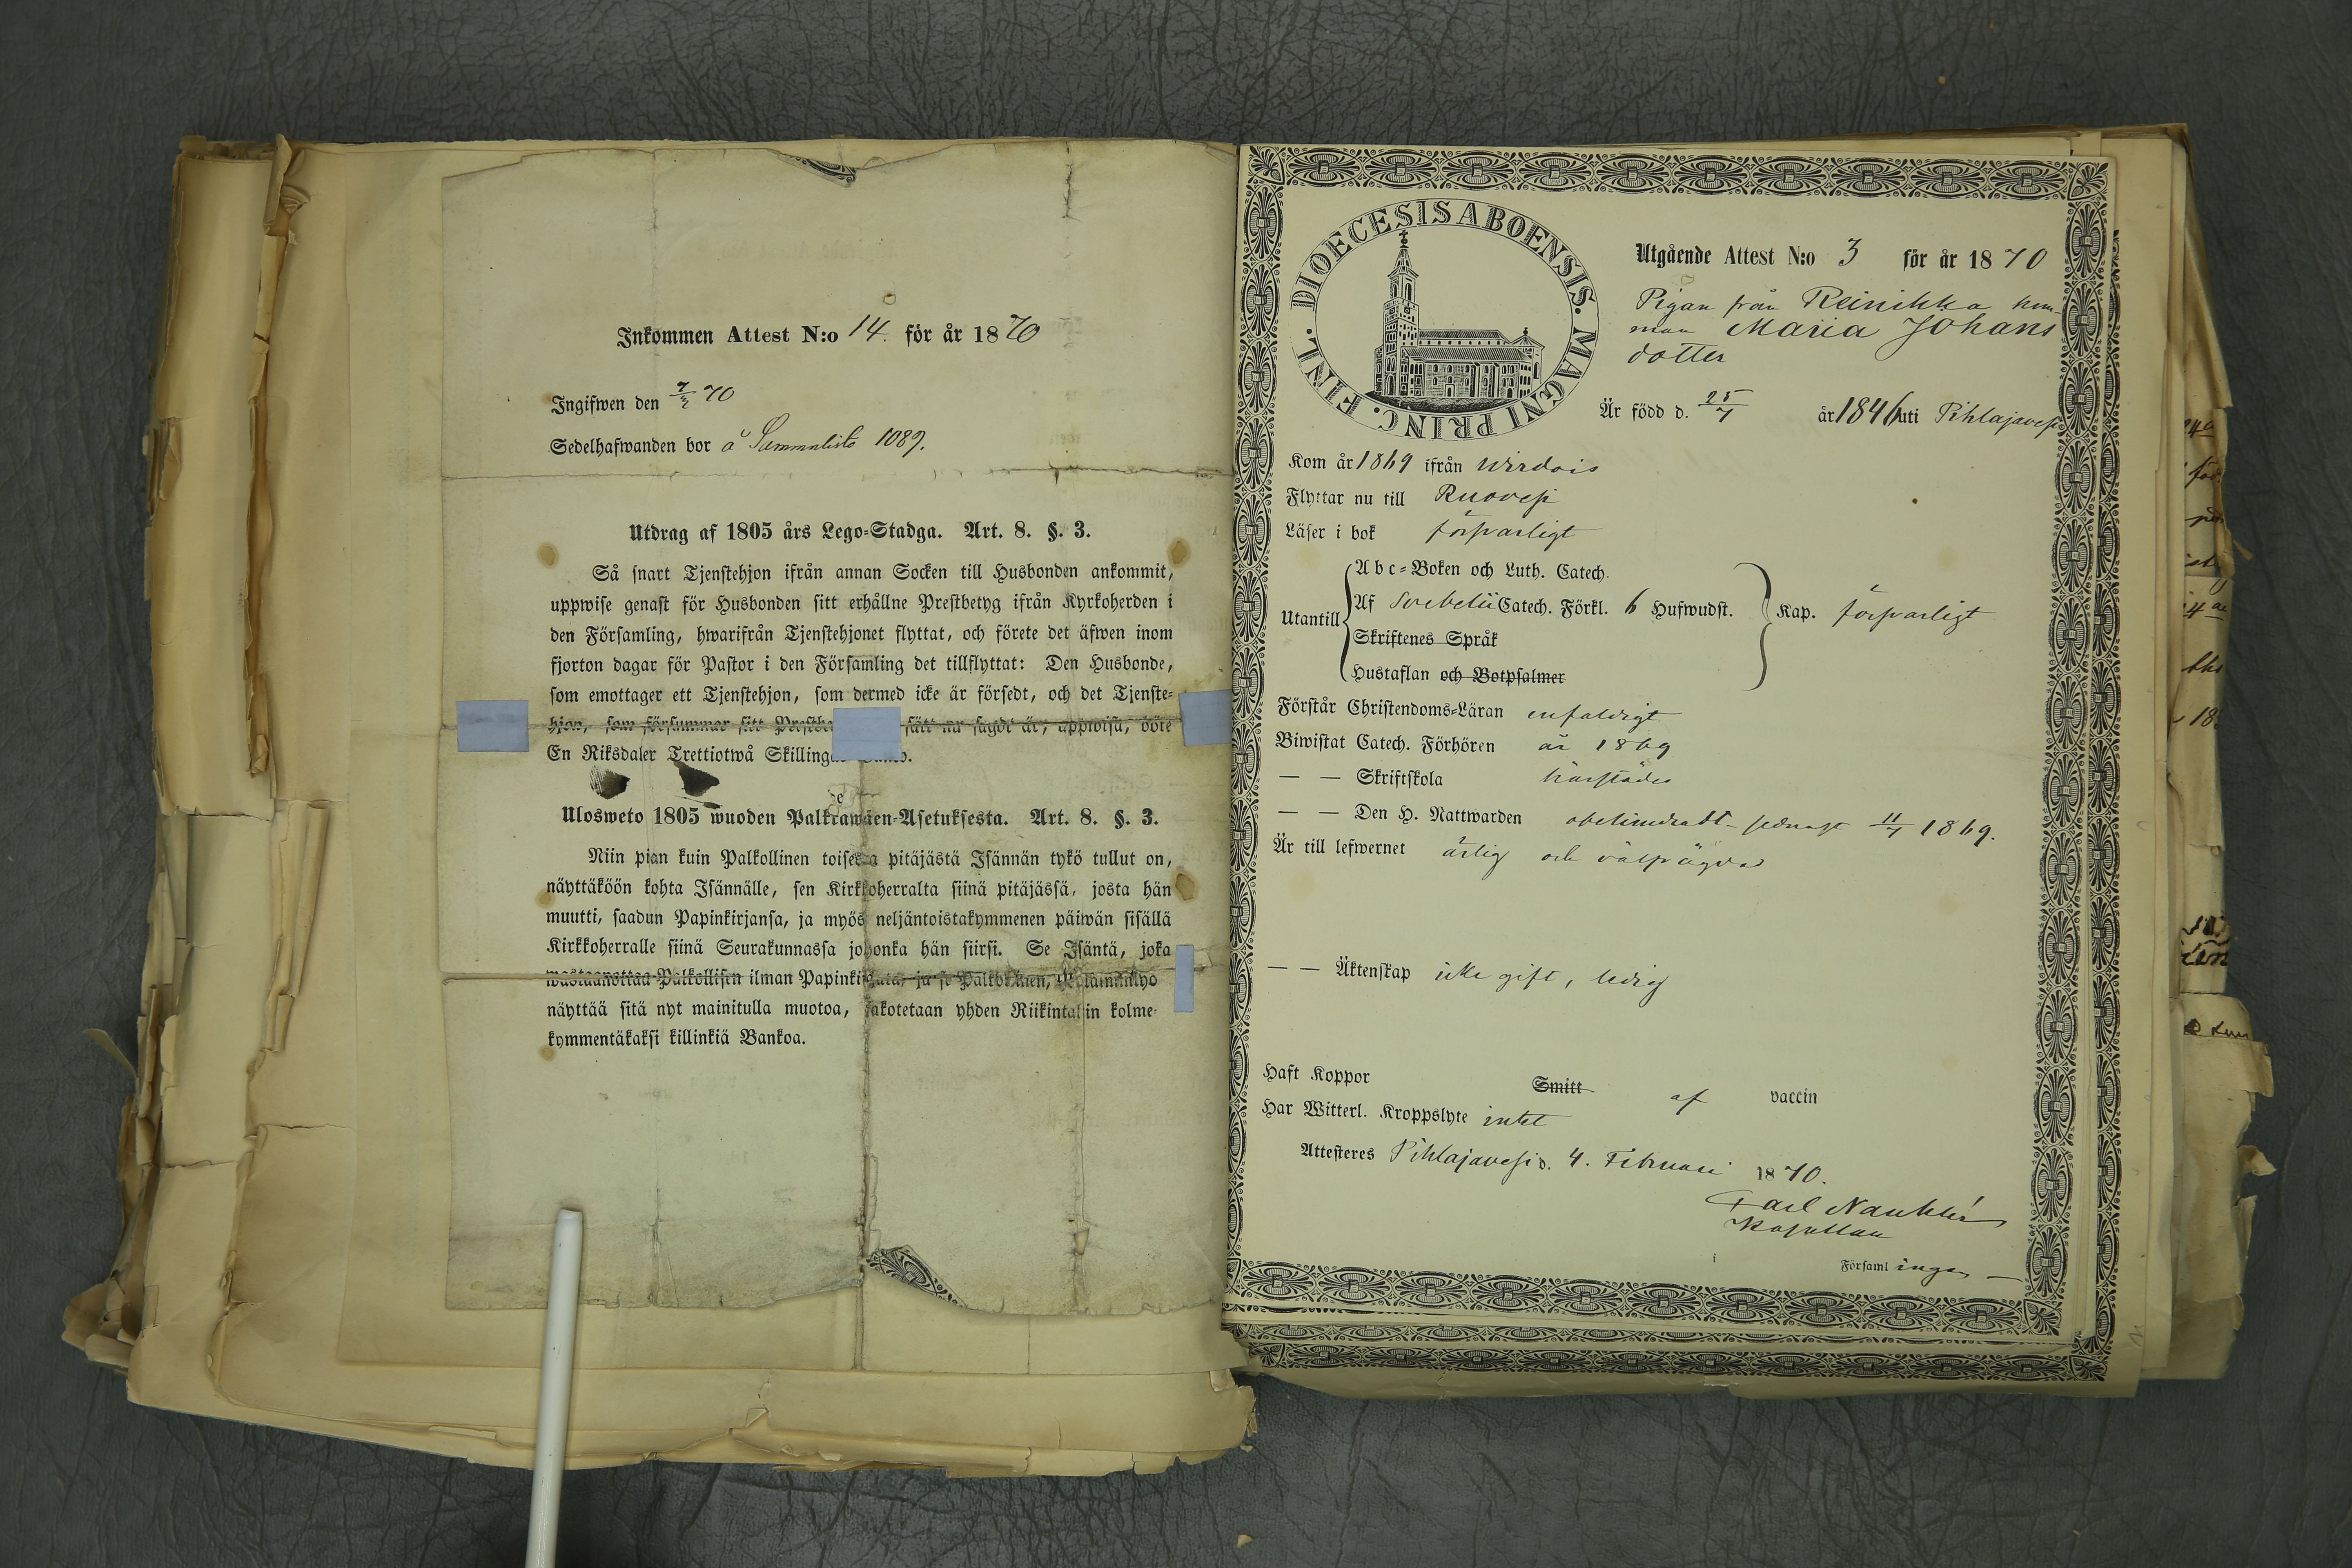 Inkommen Attest N:o 14. för år 1870
Ingifwen den 7/3 70
Sedelhafwanden bor å 1089.
Utdrag af 1805 års Lego=Stadga. Art. 8. §. 3.
Så snart Tjenstehjon ifrån annan Socken till Husbonden ankommit,
uppwise genast för Husbonden sitt erhållne Prestbetyg ifrån Kyrkoherden i
den Församling, hwarifrån Tjenstehjonet flyttat, och förete det äfwen inom
fjorton dagar för Pastor i den Församling det tillflyttat: Den Husbonde,
som emottager ett Tjenstehjon, som dermed icke är försedt, och det Tjenste=
hjon, som försummar sitt sätt nu sagdt är, uppwisa, böte
En Riksdaler Trettiotwå
Ulosweto 1805 wuoden Palkrawäen=Asetuksesta. Art. 8. §. 3.
Niin pian kuin Palkollinen toisesta pitäjästä Isännän tykö tullut on,
näyttäköön kohta Isännälle, sen Kirkkoherralta siinä pitäjässä, josta hän
muutti, saadun Papinkirjansa, ja myös neljäntoistakymmenen päiwän sisällä
Kirkkoherralle siinä Seurakunnassa johonka hän siirsi. Se Isäntä, joka
wastaanottaa Palkollisen ilman ja se Palkollinen,
näyttää sitä nyt mainitulla muotoa, sakotetaan yhden Riikintalrin kolme=
kymmentäkaksi killinkiä Bankoa.
DIOECESIS ABOENSIS. MAGNI PRINC. FINL.
Utgående Attest N:o 3 för år 1870
Pigan från Reinikka hem-
man Maria Johans
dotter
Är född d. 25/7 år 1846 uti Pihlajavesi
Kom år 1869 ifrån Wirdois
Flyttar nu till Ruovesi
Läser i bok försvarligt
Utantill
Abc=Boken och Luth. Catech.
Af Svebelii Catech. Förkl. 6 Hufwudst.
Skriftenes Språk
Hustaflan och Botpsalmer
Kap. försvarligt
Förstår Christendoms=Läran enfaldigt
Biwistat Catech. Förhören år 1869
— — Skriftskola härstädes
— — Den H. Nattwarden obehindradt senast 11/7 1869.
Är till lefwernet ärlig och välfrägdad
— — Äktenskap icke gift, ledig
Haft Koppor Smitt af vaccin
Har Witterl. Kroppslyte intet
Attesteres Pihlajavesi d. 4. Februari 1870.
Carl Nauklér
Kapellan
Församl ingen